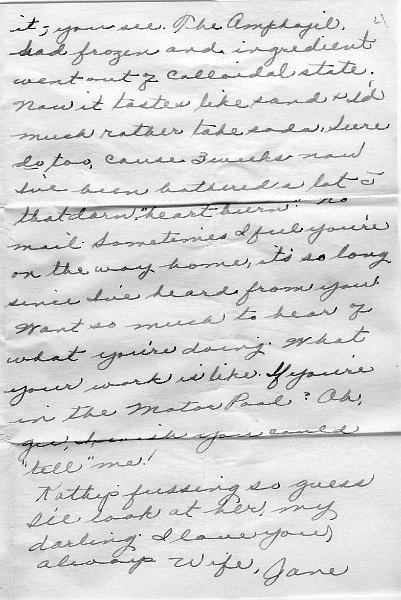 it, you see. The Amphojil, 4
had frozen and ingredient
went out of Colloidal state.
Now it tastes like sand & I'd
much rather take soda. Sure
do too, cause 3 weeks now
I've been bothered a lot c̄
that darn "heart burn" no
mail. Sometimes I feel you're
on the way home, it's so long
since I've heard from you!
Want so much to hear of
what you're doing. What
your work is like. If you're
in the Motor Pool? Oh,
gee, how wish you could
"tell" me!
Kathy's fussing so guess
I'll look at her, my
darling. I love you,
always Wife, Jane